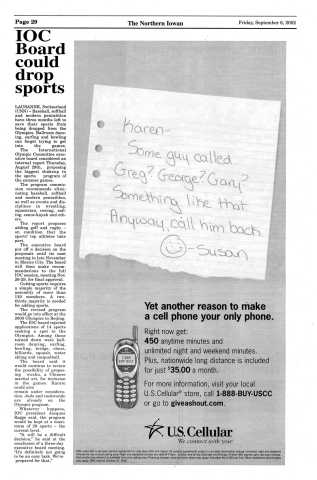 Page 29
The Northern Iowan
Friday, September 6, 2002
IOC
Board
could
drop
sports
LAUSANNE, Switzerland
(CNN)-- Baseball, softball
and modern pentathlon
have three months left to
save their sports from
being dropped from the
Olympics. Ballroom danc-
ing, surfing and bowling
can forget trying to get
into the games.
The International
Olympic Committee exec-
utive board considered an
internal report Thursday,
August 29th, proposing
the biggest shakeup in
the sports program of
the summer games.
The program commis-
sion recommends elimi-
nating baseball, softball
and modern pentathlon,
as well as events and dis-
ciplines in wrestling,
equestrian, rowing, sail-
ing, canoe-kayak and oth-
ers.
The report proposes
adding golf and rugby --
on condition that the
sports' top athletes take
part.
The executive board
put off a decision on the
proposals until its next
meeting in late November
in Mexico City. The board
will then make recom-
mendations to the full
IOC session, meeting Nov
28-29, for final approval.
Cutting sports requires
a simple majority of the
assembly of more than
120 members. A two-
thirds majority is needed
for adding sports.
The revised program
would go into effect at the
2008 Olympics in Beijing.
The IOC board rejected
applications of 14 sports
seeking a spot in the
Olympics. Among those
turned down were ball-
room dancing, surfing,
bowling, bridge, chess,
billiards, squash, water
skiing and racquetball.
The board said it
would continue to review
the possibility of propos-
ing wushu, a Chinese
martial art, for inclusion
in the games. Karate
could also
remain under consider-
ation. Judo and taekwondo
are already on the
Olympic program.
Whatever happens,
IOC president Jacques
Rogge said, the program
would be kept at a maxi-
mum of 28 sports -- the
current level.
"It will be a difficult
decision," he said at the
conclusion of a three-day
executive board meeting.
"It's definitely not going
to be an easy task. We're
prepared for that."
Karen-
Some guy called
Greg? George? Gary?
Something like that
Anyway, call him back
- Susan
Yet another reason to make
a cell phone your only phone.
Right now get:
450 anytime minutes and
unlimited night and weekend minutes.
Plus, nationwide long distance is included
for just $35.00 a month.
For more information, visit your local
U.S.Cellular® store, call 1-888-BUY-USCC
or go to giveashout.com.
U.S. Cellular
We connect with you.